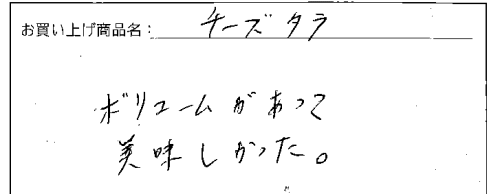 お買い上げ商品名：チーズタラ
ボリュームがあって
美味しかった。